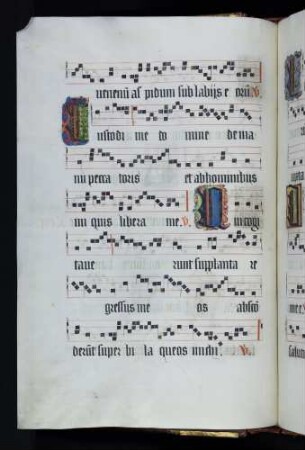 uenenū aspidum sub labijs eorū ℣.
Custodi me domine de ma
nu peccatoris et ab hominibus
iniquis libera me. ℣. Qui cogi
tauerunt supplantare
gressus meos abscō
derūt superbi laqueos michi. ℣.